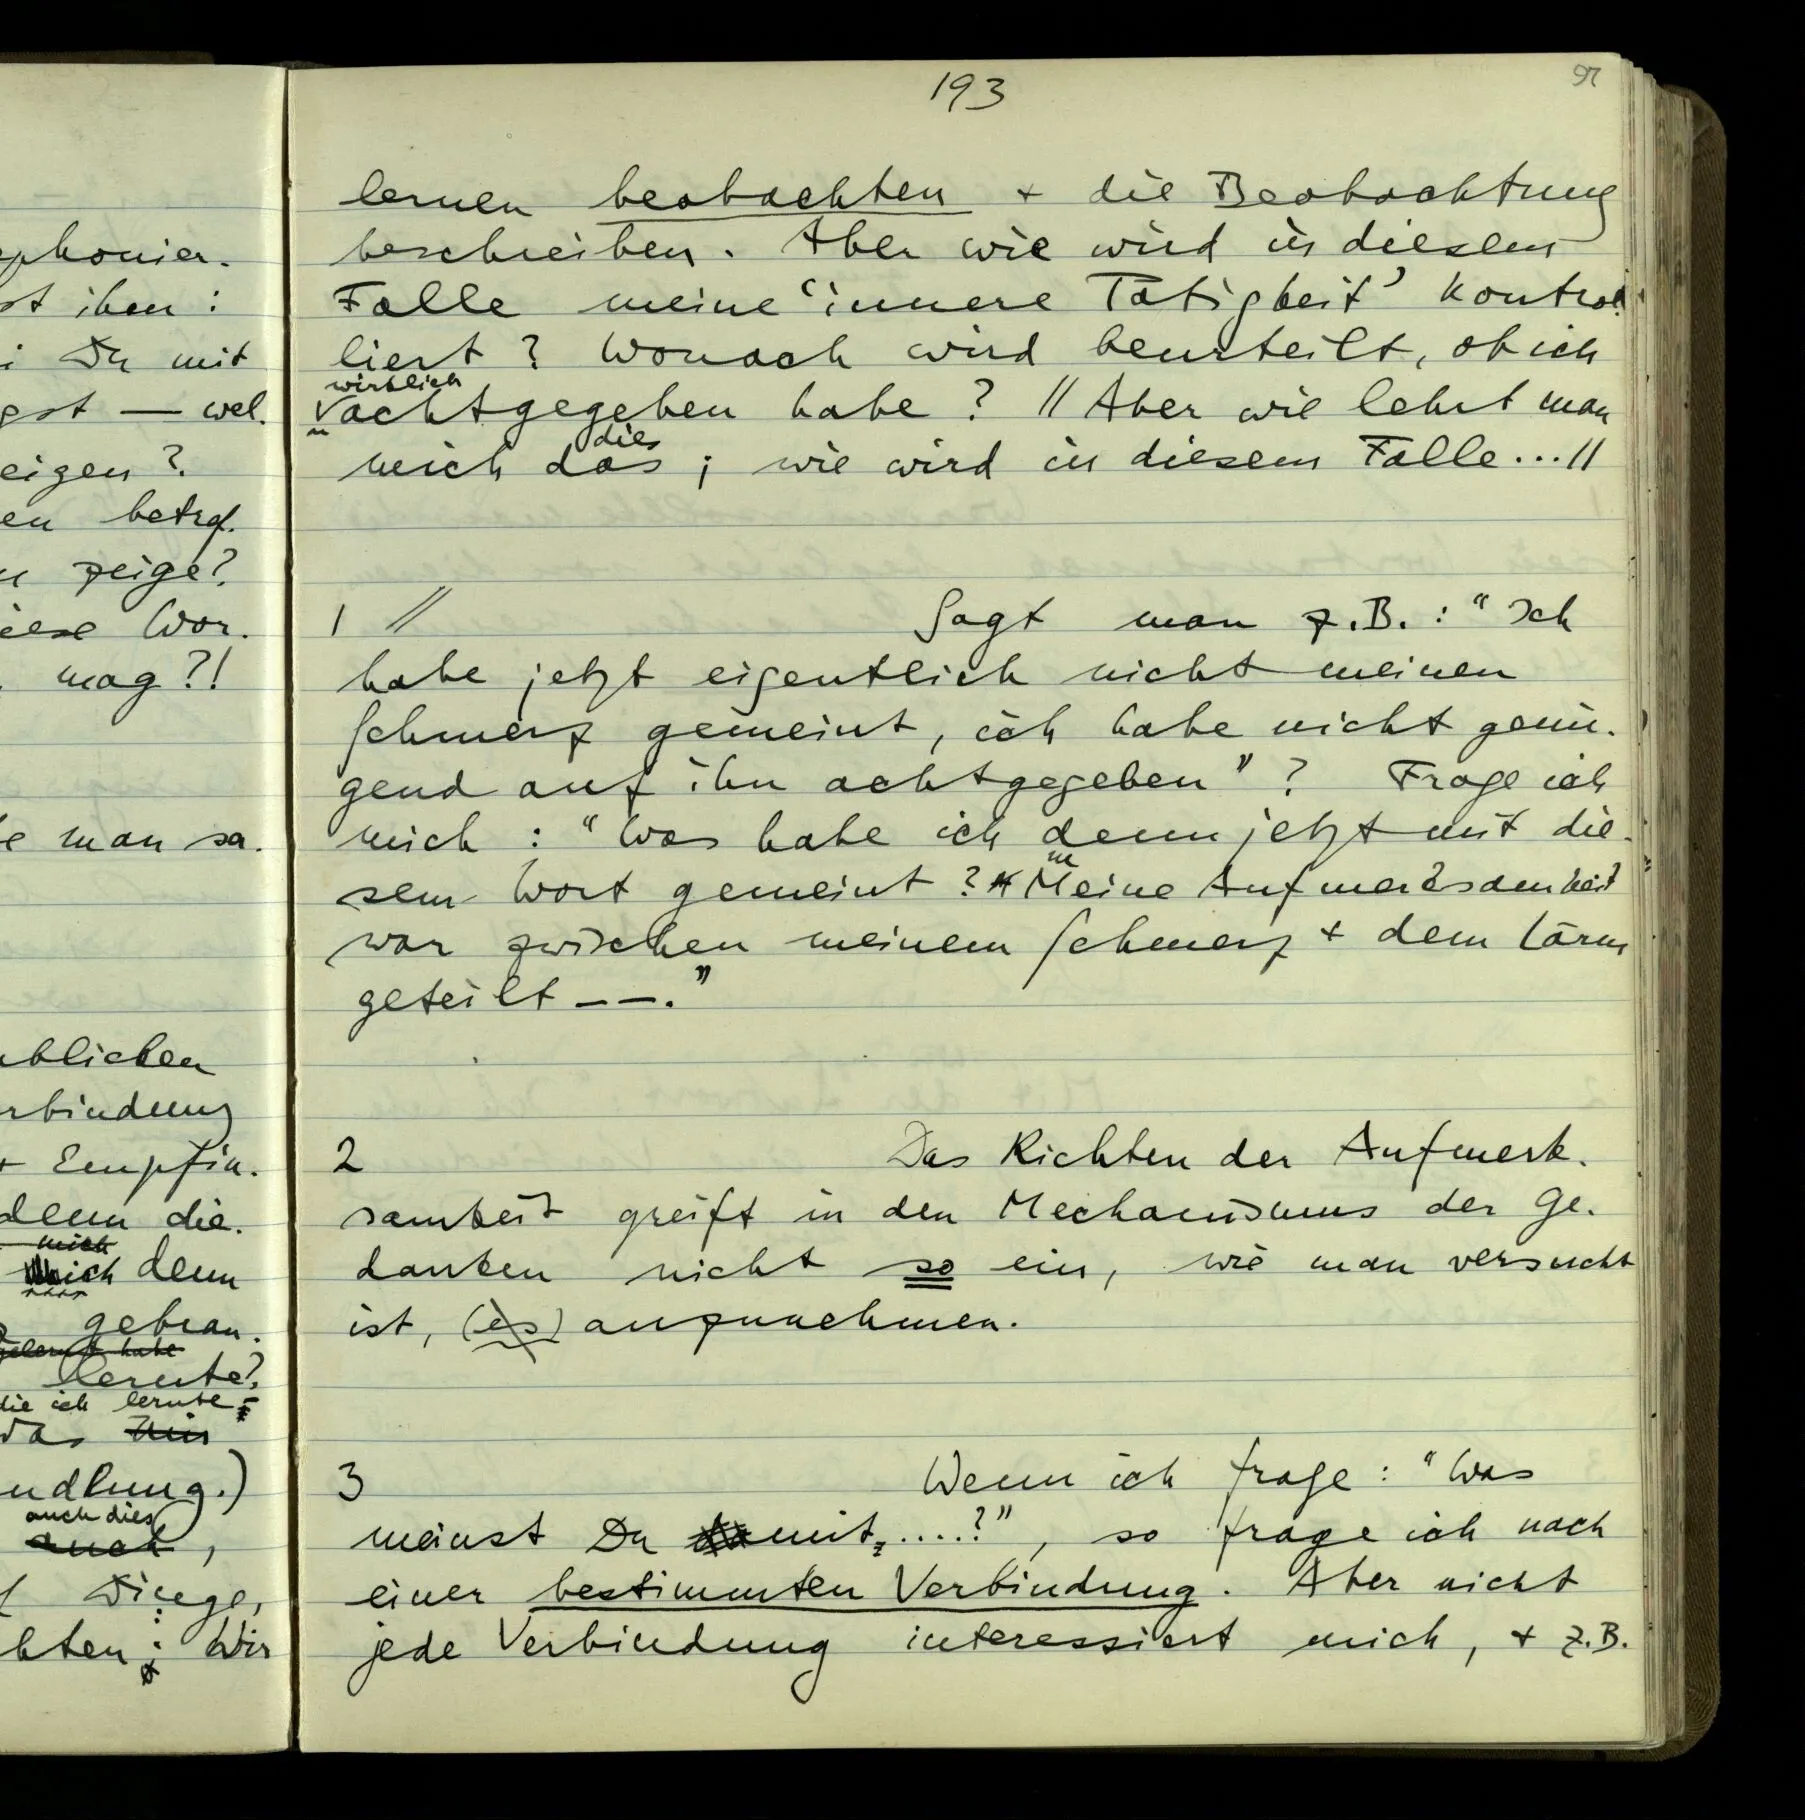 phonier.
st ihm :
i Du mit
gst — wel.
eigen ?
en betref.
n zeige?
iese Wor.
mag ?!
e man sa.
blicken
rbindung
+ Empfin.
denn die.
mich
ich denn
gebrau.
gelernt habe
lernte?
die ich lernte
das
ndlung.)
auch dies
auch ,
Dinge,
hten : Wir
193
97
lernen beobachten + die Beobachtung
beschreiben. Aber wie wird in diesem
Falle meine 'innere Tätigkeit' kontrol.
liert ? Wonach wird beurteilt, ob ich
wirklich
achtgegeben habe ? // Aber wie lehrt man
dies
mich das ; wie wird in diesem Falle...//
1 // Sagt man z.B. : "Ich
habe jetzt eigentlich nicht meinen
Schmerz gemeint, ich habe nicht genü.
gend auf ihn achtgegeben" ? Frage ich
mich : "Was habe ich denn jetzt mit die.
sem Wort gemeint ? Meine Aufmerksamkeit
war zwischen meinem Schmerz + dem Lärm
geteilt – – ."
2 Das Richten der Aufmerk.
samkeit greift in den Mechanismus der Ge.
danken nicht so ein, wie man versucht
ist, (es) anzunehmen.
3 Wenn ich frage : "Was
meinst Du mit .....?", so frage ich nach
einer bestimmten Verbindung. Aber nicht
jede Verbindung interessiert mich, + z.B.